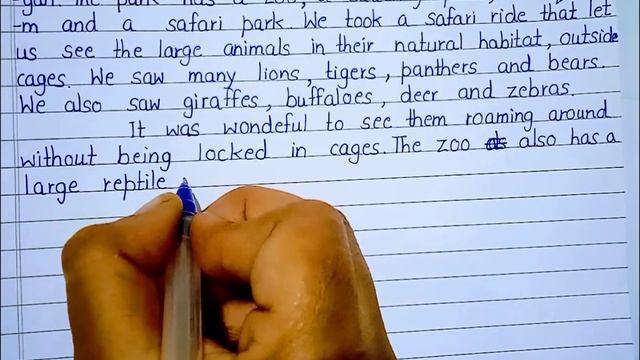 park has a zoo, a
-m and a safari park We took a safari ride that let
us see the large animals in their natural habitat, outside
cages. We saw many lions, tigers, panthers and bears.
We also saw giraffes, buffaloes, deer and zebras.
It was wondeful to see them roaming around
without being locked in cages. The zoo also has a
large reptile